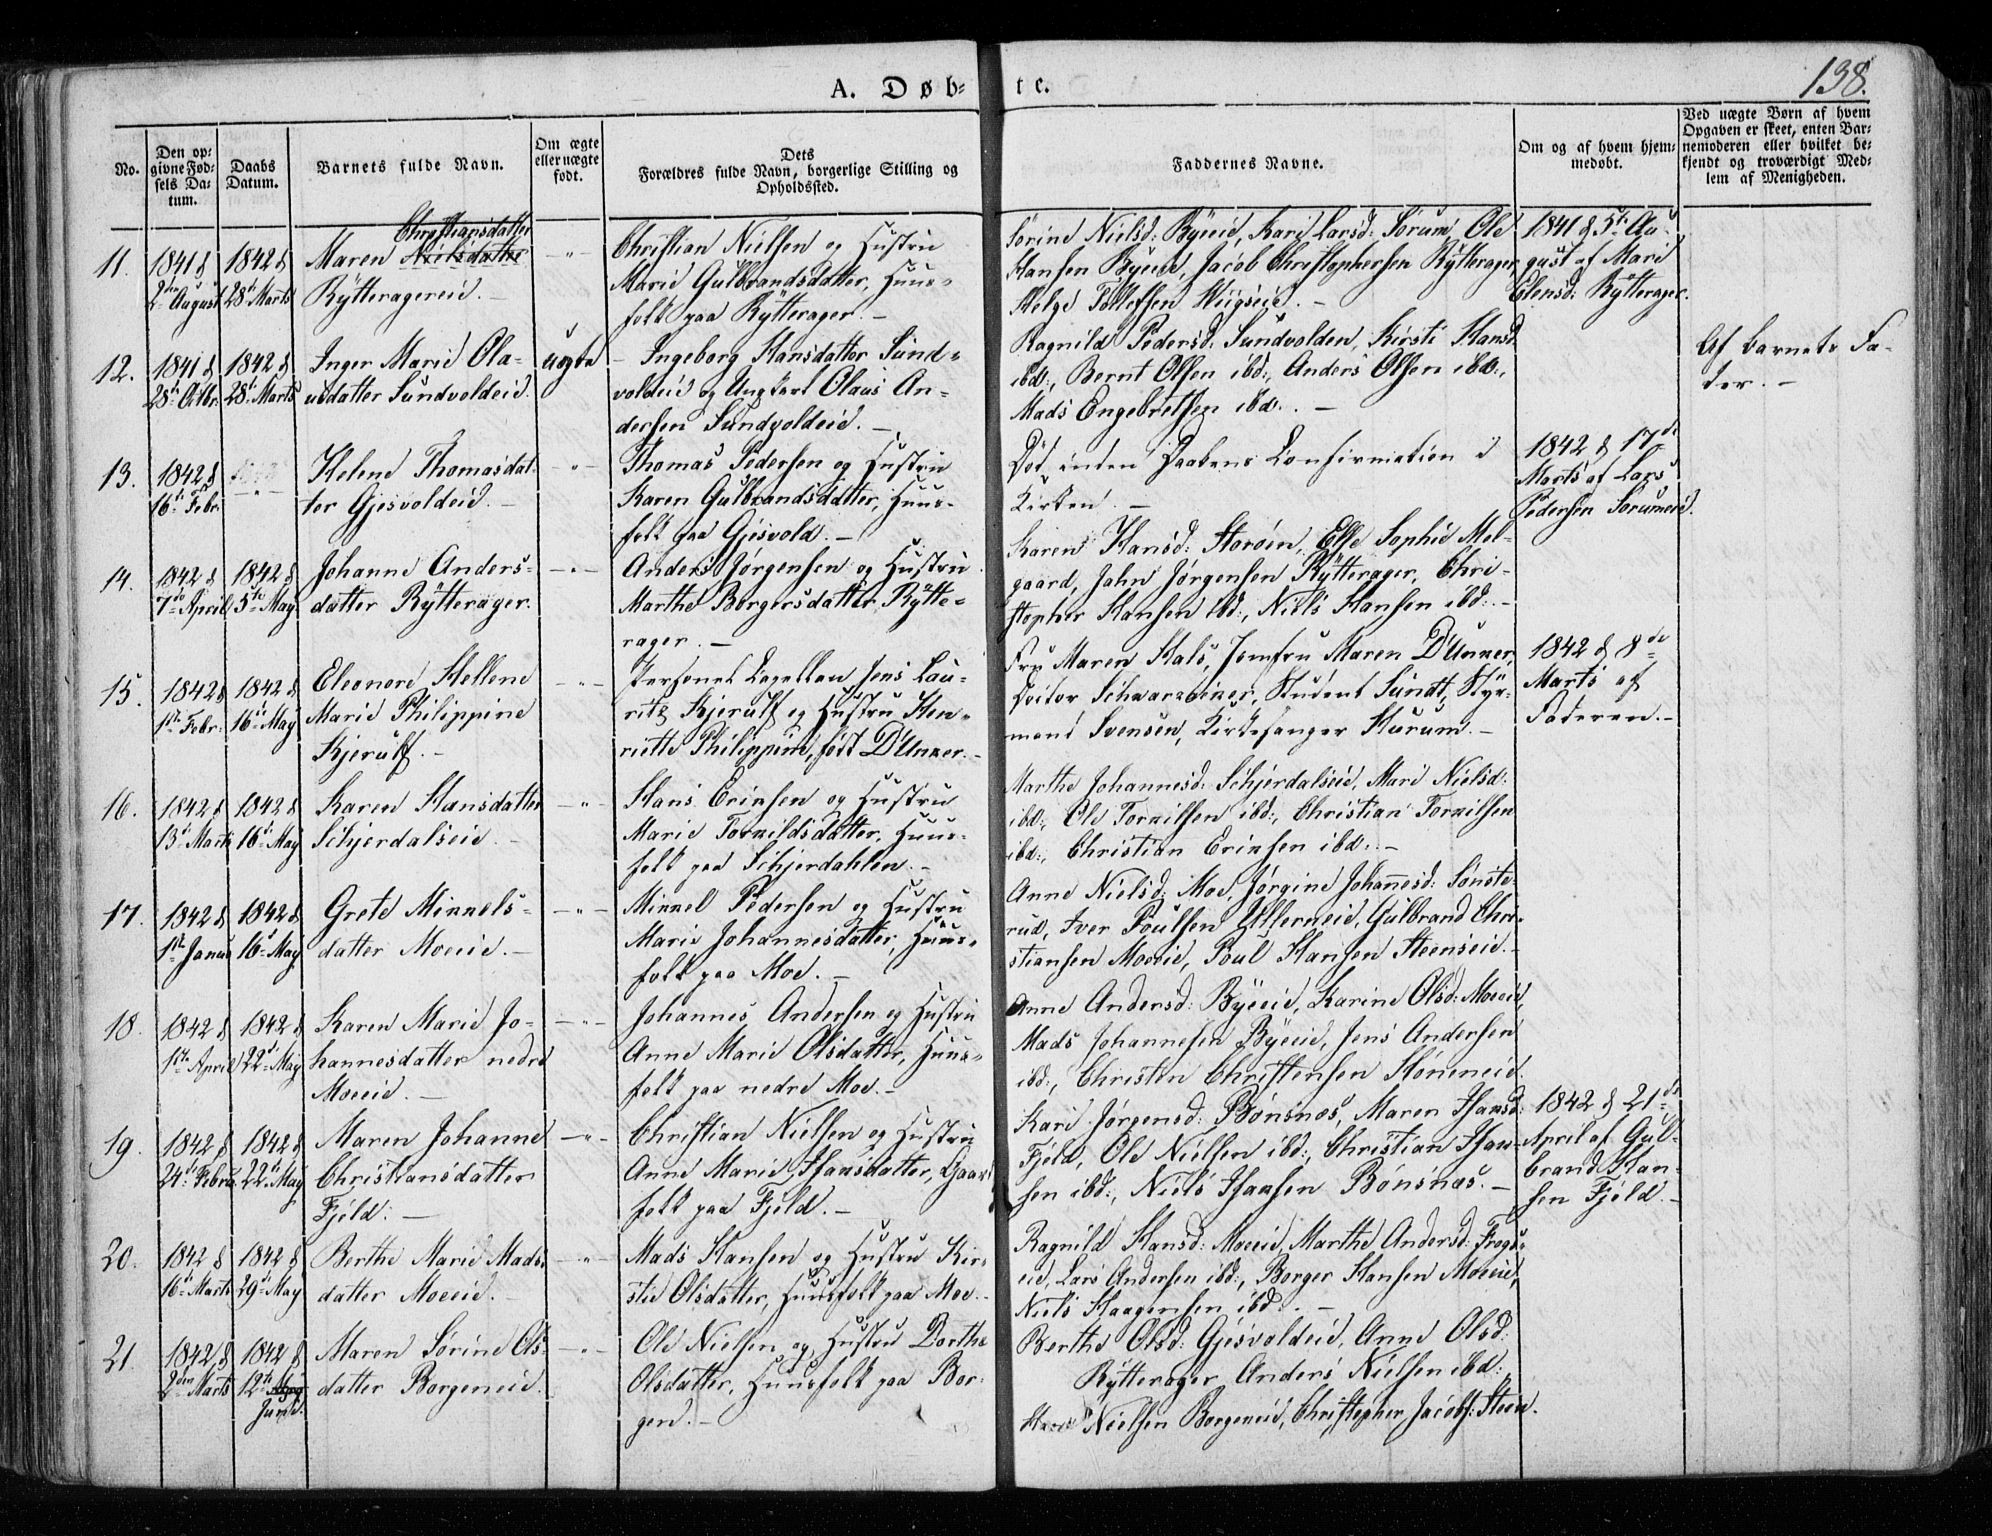 138.
A. Døb-
te.
No.
Den op-
givne Fød-
sels Da-
tum.
Daabs
Datum.
Barnets fulde Navn.
Om ægte
eller uægte
født.
Dets
Forældres fulde Navn, borgerlige Stilling og
Opholdssted.
Faddernes Navne.
Om og af hvem hjem-
medøbt.
Ved uægte Børn af hvem
Opgaven er skeet, enten Bar-
nemoderen eller hvilket be-
kjendt og troværdigt Med-
lem af Menigheden.
11.
1841 d
2den August
1842 d
28de Marts
Christiansdatter
Maren Nielsdatter
Rÿtteragereid.
Christian Nielsen og Hustru
Marie Gulbrandsdatter, Huus-
folk paa Rÿtterager.
Sørine Nielsd: Bÿeeid, Kari Larsd: Sørum, Ole
Hansen Bÿeeid, Jacob Christophersen Rÿtterager,
Helge Tollefsen Wiigseid.
1841 d 5te Au-
gust af Mari
Elensd: Rÿtterager.
12.
1841 d
28de Octbr.
1842 d
28de Marts
Inger Marie Ola-
usdatter Sundvoldeid.
uægte
Ingeborg Hansdatter Sund-
voldeid og Ungkarl Olaus An-
dersen Sundvoldeid.
Ragnild Pedersd: Sundvolden, Kirsti Hansd:
ibd:, Bernt Olsen ibd:, Anders Olsen ibd:,
Mads Engebretsen ibd:
Af barnets Fa-
der.
13.
1842 d
16de Febr.
Helene Thomasdat-
ter Gjesvoldeid.
Thomas Pedersen og Hustru
Karen Gulbrandsdatter, Huus-
folk paa Gjesvold.
Død inden Daabens Confirmation i
Kirken.
1842 d 17de
Marts af Lars
Pedersen Sørumeid.
14.
1842 d
7de April
1842 d
5te May
Johanne Anders-
datter Rÿtterager.
Anders Jørgensen og Hustru
Marthe Borgersdatter, Rÿtte-
rager.
Karen Hansd: Storøen, Else Sophie Mel-
gaard, John Jørgensen Rÿtterager, Chri-
stopher Hansen ibd:, Niels Hansen ibd:
15.
1842 d
1ste Febr:
1842 d
16de May
Eleonore Hellene
Marie Philippine
Kjerulf.
Personel Capellan Jens Lau-
ritz Kjerulf og Hustru Hen-
riette Philippine, født D'Unker.
Fru Maren Hals, Jomfru Maren D'Unker,
Doctor Schwarz, Student Sundt, Styr-
mand Svensen, Kirkesanger Hurum.
1842 d 8de
Marts af
Faderen.
16.
1842 d
13de Marts
1842 d
16de May
Karen Hansdatter
Schjerdalseid.
Hans Ericksen og Hustru
Marie Torkildsdatter, Huus-
folk paa Schjerdahlen.
Marthe Johannesd: Schjerdalseid, Mari Nielsd:
ibd:, Ole Torkilsen ibd:, Christian Torkilsen
ibd:, Christian Ericksen ibd:
17.
1842 d
1ste Janua
1842 d
16de May
Grete Mikkels-
datter Moeeid.
Mikkel Pedersen og Hustru
Marie Johannesdatter, Huus-
folk paa Moe.
Anne Nielsd: Moe, Jørgine Johannesd: Sønste-
rud, Iver Poulsen Ullerneid, Gulbrand Chri-
stiansen Moeeid, Poul Hansen Steenseid.
18.
1842 d
1ste April
1842 d
22de May
Karen Marie Jo-
hannesdatter nedre
Moeeid.
Johannes Andersen og Hustru
Anne Marie Olsdatter, Huus-
folk paa nedre Moe.
Anne Andersd: Bÿeeid, Karine Olsd: Moeeid,
Mads Johannesen Bÿeeid, Jens Andersen
ibd:, Christen Christensen Høneneid.
19.
1842 d
24de Februa
1842 d
22de May
Maren Johanne
Christiansdatter
Fjeld.
Christian Nielsen og Hustru
Anne Marie Hansdatter, Gaard-
folk paa Fjeld.
Kari Jørgensd: Bønsnæs, Maren Hansd:
Fjeld, Ole Nielsen ibd:, Christian Han-
sen ibd:, Niels Hansen Bønsnæs.
1842 d 21de
April af Gul-
brand Han-
sen Fjeld.
20.
1842 d
16de Marts
1842 d
29de May
Berthe Marie Mads-
datter Moeeid.
Mads Hansen og Hustru Kir-
stie Olsdatter, Huusfolk paa Moe.
Ragnild Hansd: Moeeid, Marthe Andersd: Frogn-
eid, Lars Andersen ibd:, Borger Hansen Moeeid,
Niels Haagensen ibd.
21.
1842 d
2den Marts
1842 d
12te May
Junii.
Maren Sørine Ols-
datter Borgeneid.
Ole Nielsen og Hustru Dorthe
Olsdatter, Huusfolk paa Bor-
gen.
Berthe Olsd: Gjesvoldeid, Anne Olsd:
Rÿtterager, Anders Nielsen ibd:
Hans Nielsen Borgeneid, Christopher Jacobs: Steen.